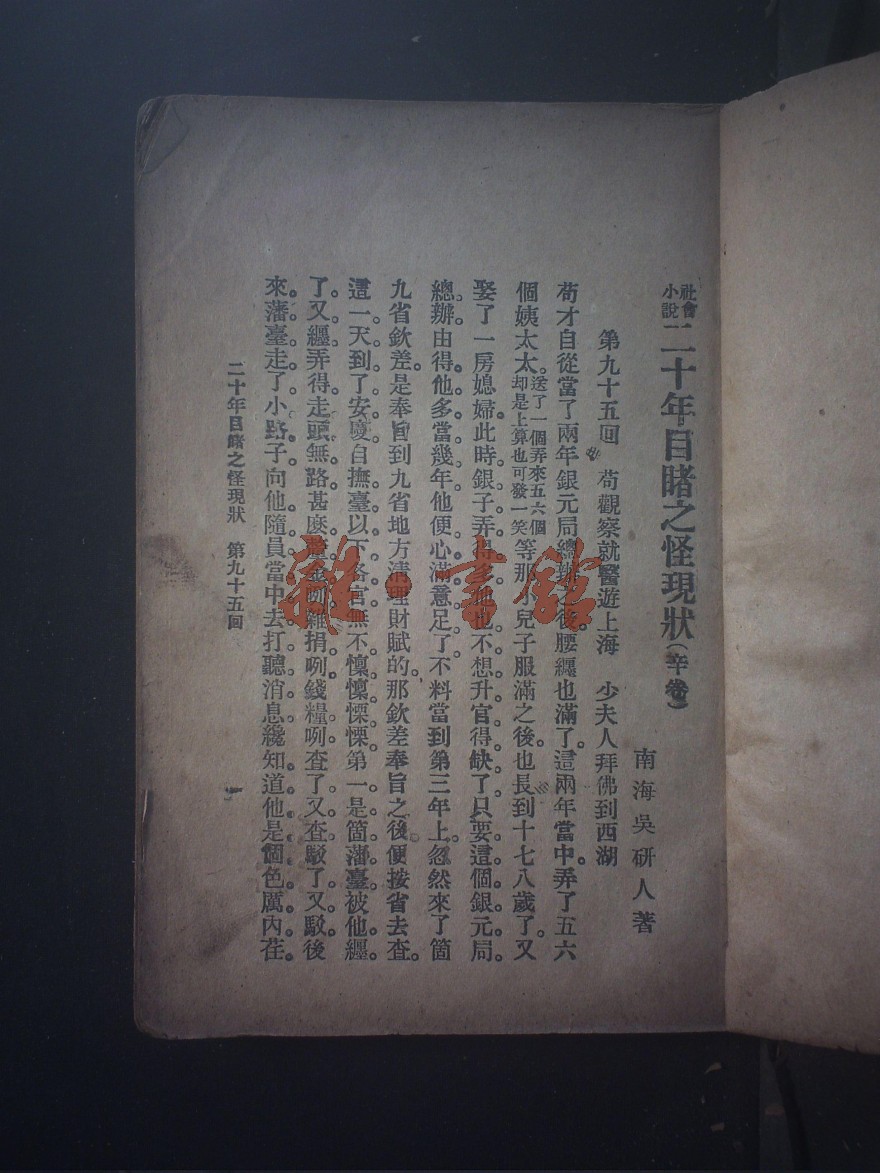 社會小說 二十年目睹之怪現狀（辛卷）
南海吳研人著
第九十五回 苟觀察就醫遊上海 少夫人拜佛到西湖
苟才自從當了兩年銀元局總辦之後。腰纏也滿了。這兩年當中。弄了五六
個姨太太。送了一個弄來五六個却是上算也可發一笑等那小兒子服滿之後。也長到十七八歲了。又
娶了一房媳婦。此時銀子弄得多。他也不想升官得缺了。只要這個銀元局
總辦。由得他多當幾年。他便心滿意足了。不料當到第三年上。忽然來了箇
九省欽差。是奉旨到九省地方清理財賦的。那欽差奉旨之後。便按省去查。
這一天到了安慶。自撫臺以下。各官無不懍懍慄慄。第一是箇藩臺。被他纏
了。又纏弄得走頭無路。甚麼釐金咧。雜捐咧。錢糧咧。查了又查。駁了又駁。後
來藩臺走了小路子。向他隨員當中去打聽消息。纔知道他是個色厲內荏。
二十年目睹之怪現狀 第九十五回
雜·書館